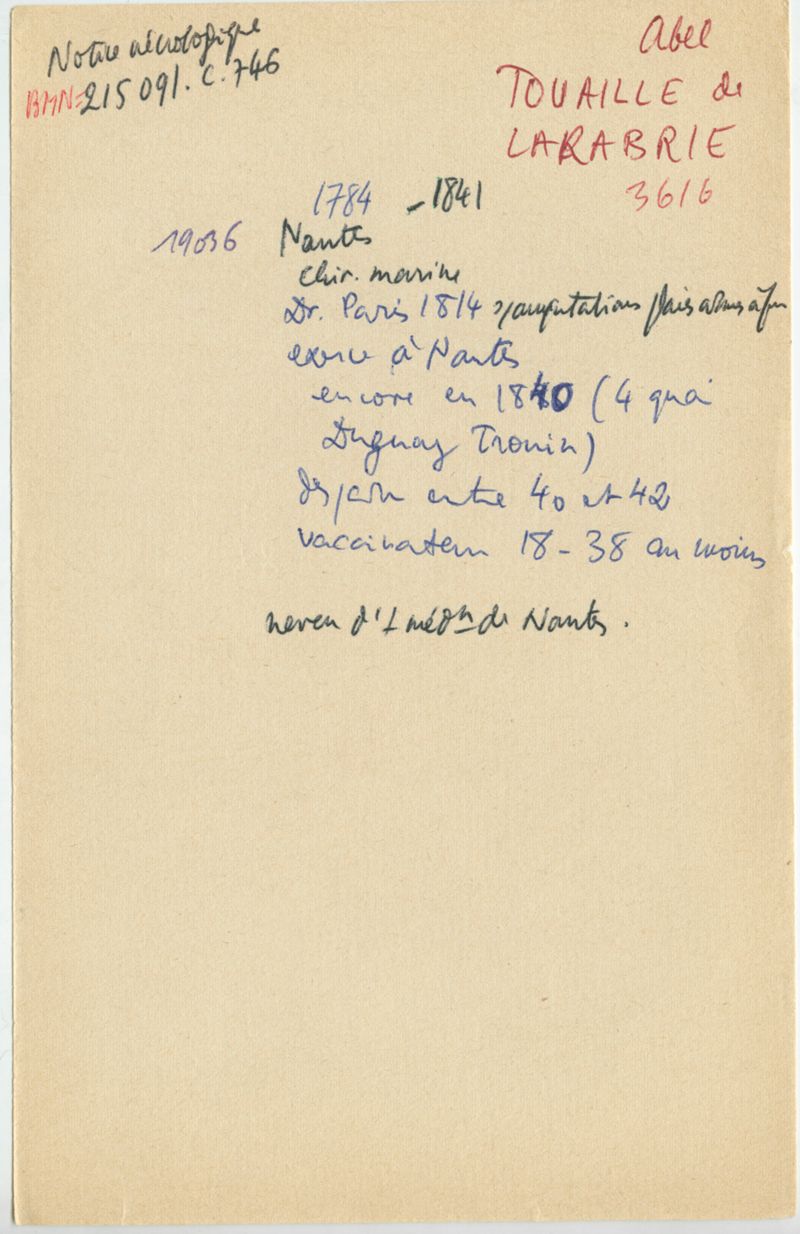 Notice nécrologique
BMN = 215 091. C. 746
Abel
TOUAILLE de
LARABRIE
3616
1784 - 1841
19036 Nantes
chir. marine
Dr. Paris 1814 amputations plaies armes à feu
exerce à Nantes
encore en 1840 (4 quai
Duguay Trouin)
entre 40 et 42
vaccinateur 18-38 au moins
neveu d'1 médn de Nantes.